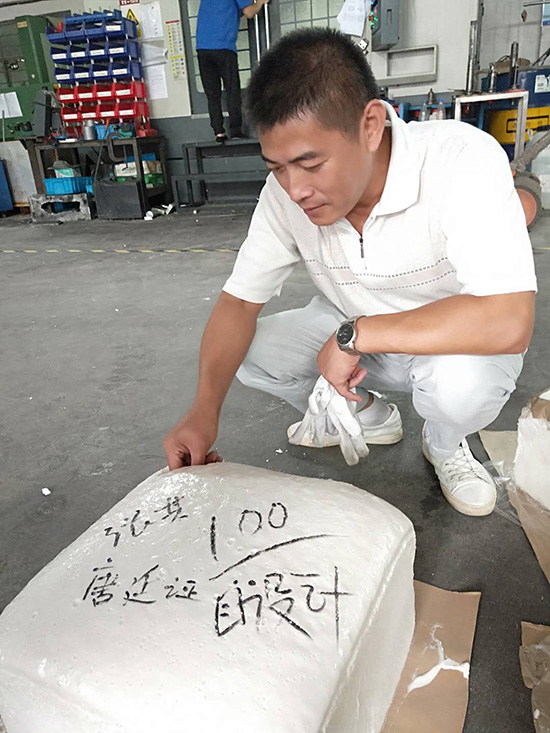 张其
100
唐廷证
自设计